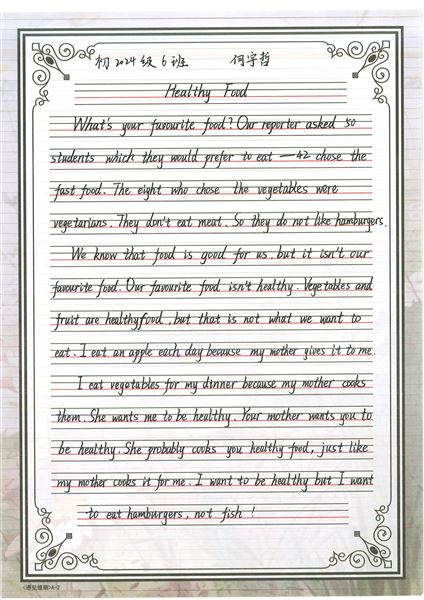 初2024级6班 何宇哲
Healthy Food
What's your favourite food? Our reporter asked 50
students which they would prefer to eat —42 chose the
fast food. The eight who chose the vegetables were
vegetarians. They don't eat meat. So they do not like hamburgers.
We know that food is good for us. but it isn't our
favourite food. Our favourite food isn't healthy. Vegetables and
fruit are healthyfood, but that is not what we want to
eat. I eat an apple each day because my mother gives it to me.
I eat vegetables for my dinner because my mother cooks
them. She wants me to be healthy. Your mother wants you to
be healthy. She probably cooks you healthy food, just like
my mother cooks it for me. I want to be healthy but I want
to eat hamburgers, not fish!